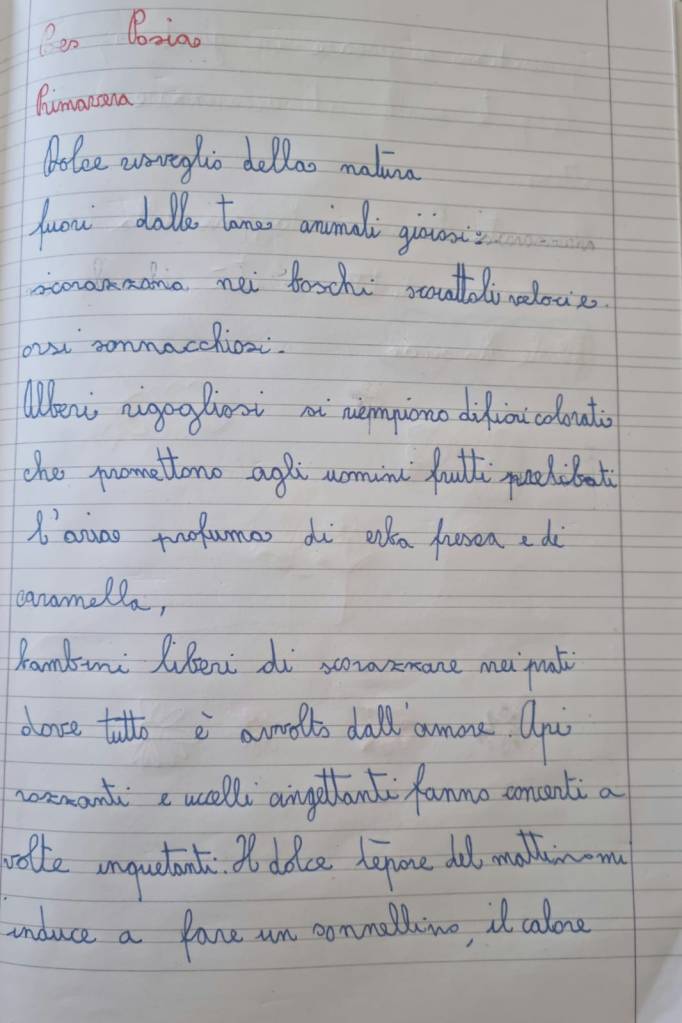 Poesia
Primavera
Dolce risveglio della natura
fuori dalle tane animali gioiosi:
scorazzano nei boschi scoiattoli veloci e
orsi sonnacchiosi.
Alberi rigogliosi si riempiono di fiori colorati
che promettono agli uomini frutti prelibati
l'aria profuma di erba fresca e di
caramella,
bambini liberi di scorazzare nei prati
dove tutto è avvolto dall'amore. Api
ronzanti e uccelli cinguettanti fanno concerti a
volte inquetanti. Il dolce tèpore del mattino mi
induce a fare un sonnellino, il calore